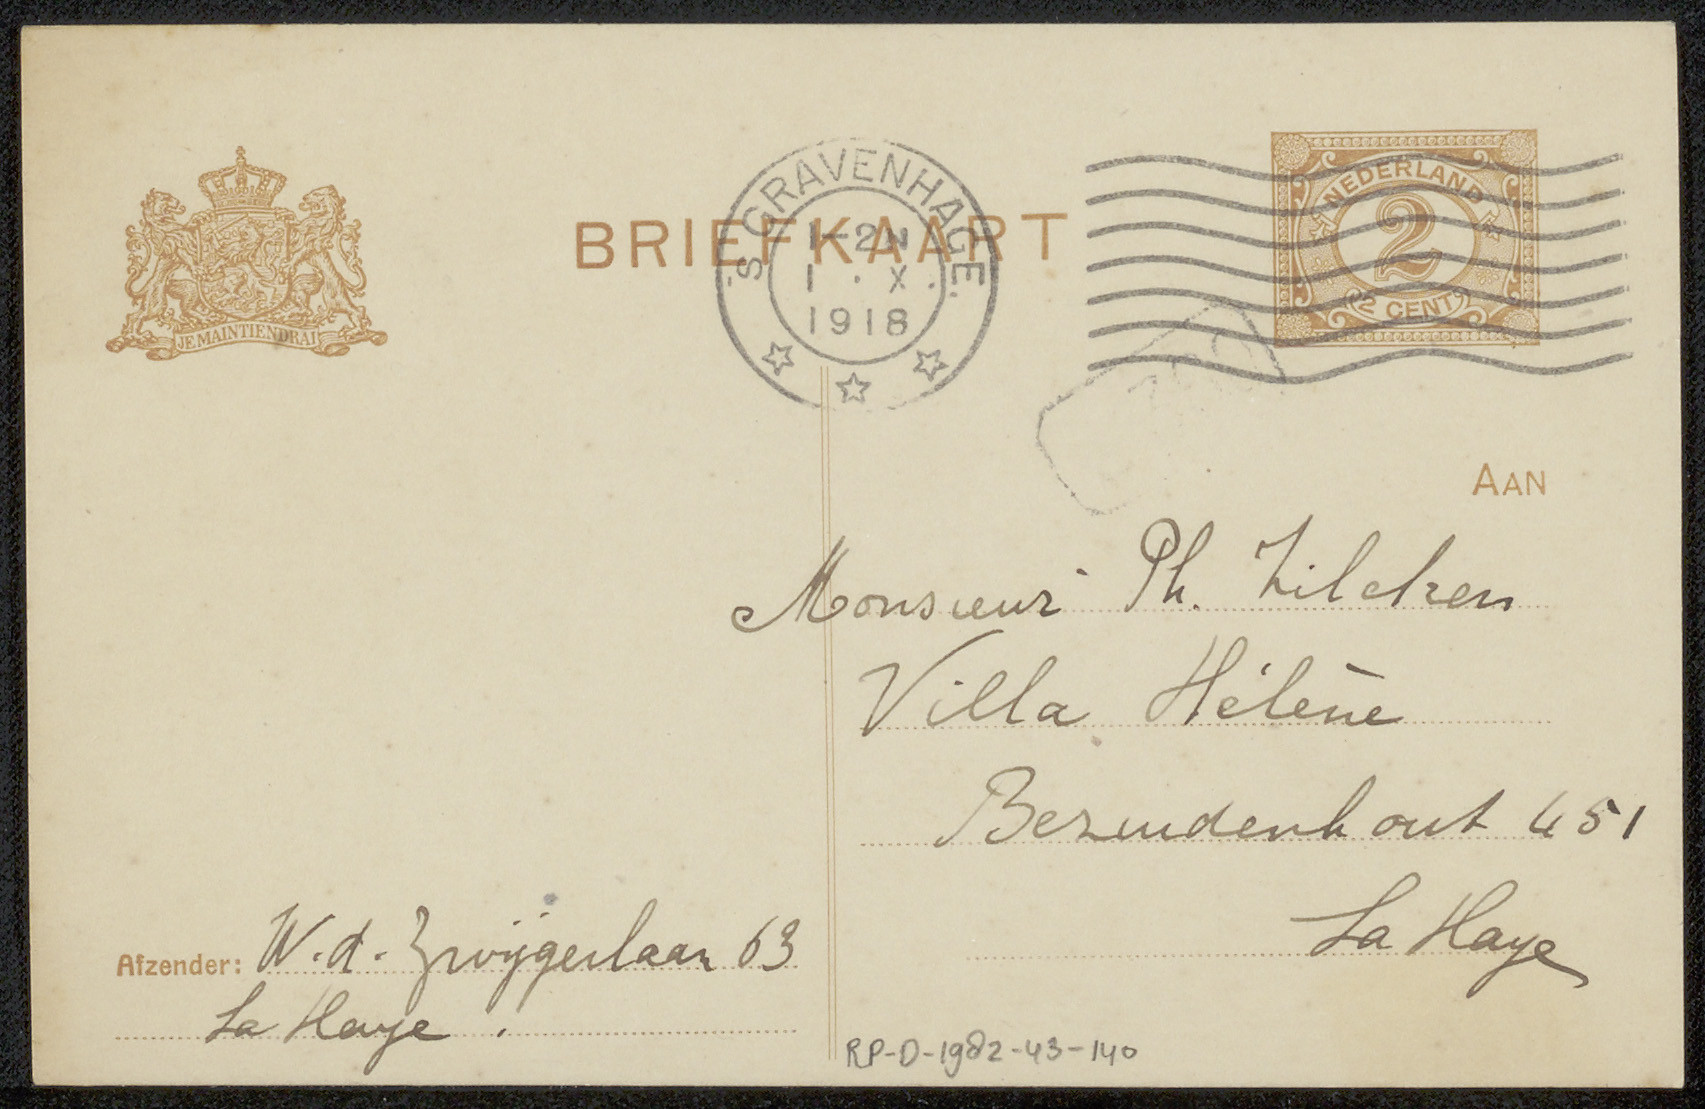 JE MAINTIENDRAI
BRIEFKAART
'S GRAVENHAGE.
1-2N
1 · X.
1918
NEDERLAND
2
2 CENT
AAN
Monsieur Ph. Zilcken
Villa Hélène
Bezuidenhout 451
La Haye
Afzender: W. d. Zwijgerlaan 63
La Haye.
RP-D-1982-43-140